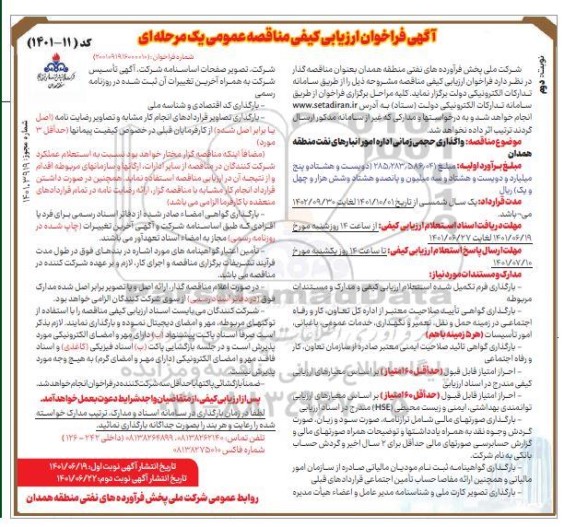 آگهی فراخوان ارزیابی کیفی مناقصه عمومی یک مرحله ای
کد (۱۱-۱۴۰۱)
شماره فراخوان:
نوبت: دوم
شرکت ملی پخش فرآورده های نفتی منطقه همدان بعنوان مناقصه گذار
در نظر دارد فراخوان ارزیابی کیفی مناقصه مشروحه ذیل را از طریق سامانه
تدارکات الکترونیکی دولت برگزار نماید. کلیه مراحل برگزاری فراخوان از طریق
سامانه تدارکات الکترونیکی دولت (ستاد) به آدرس www.setadiran.ir
انجام خواهد شد و به درخواستها و مدارکی که غیر از سامانه مذکور ارسال
گردند ترتیب اثر داده نخواهد شد.
موضوع مناقصه: واگذاری حجمی زمانی اداره امور انبارهای نفت منطقه
همدان
مبلغ برآورد اولیه: مبلغ (۲۸۵,۲۸۳,۵۸۶,۰۴۱) (دویست و هشتاد و پنج
میلیارد و دویست و هشتاد و سه میلیون و پانصد و هشتاد و شش هزار و چهل
و یک) ریال
مدت قرارداد: یک سال شمسی از تاریخ ۱۴۰۱/۱۰/۰۱ لغایت ۱۴۰۲/۰۹/۳۰
می-باشد.
مهلت دریافت اسناد استعلام ارزیابی کیفی: از ساعت ۱۴ روز شنبه مورخ
۱۴۰۱/۰۶/۱۹ لغایت ۱۴۰۱/۰۶/۲۷
مهلت ارسال پاسخ استعلام ارزیابی کیفی: تا ساعت ۱۴ روز یکشنبه مورخ
۱۴۰۱/۰۷/۱۰
مدارک و مستندات مورد نیاز:
- بارگذاری فرم تکمیل شده استعلام ارزیابی کیفی و مدارک و مستندات
مربوطه
- بارگذاری گواهی تأیید صلاحیت معتبر از اداره کل تعاون، کار و رفاه
اجتماعی در زمینه حمل و نقل، تعمیر و نگهداری، خدمات عمومی، باغبانی،
امور تأسیسات (هر ۵ زمینه باهم)
- بارگذاری گواهی تائید صلاحیت ایمنی معتبر صادره از سازمان تعاون، کار
و رفاه اجتماعی
- احراز امتیاز قابل قبول (حداقل ۶۰ امتیاز) بر اساس معیارهای ارزیابی
کیفی مندرج در اسناد ارزیابی
- احراز امتیاز قابل قبول (حداقل ۶۰ امتیاز) بر اساس معیارهای ارزیابی
توانمندی بهداشتی، ایمنی و زیست محیطی (HSE) مندرج در اسناد ارزیابی
- بارگذاری صورتهای مالی شامل ترازنامه، صورت سود و زیان، صورت
گردش وجوه نقد به همراه یادداشتها و توضیحات همراه صورتهای مالی و
گزارش حسابرسی صورتهای مالی حداقل برای ۲ سال اخیر و گردش حساب
بانکی به نام شرکت.
- بارگذاری گواهینامه ثبت نام مودیان مالیاتی صادره از سازمان امور
مالیاتی و همچنین ارائه مفاصا حساب تأمین اجتماعی قراردادهای قبلی
- بارگذاری تصویر کارت ملی و شناسنامه مدیر عامل و اعضاء هیأت مدیره
شرکت، تصویر صفحات اساسنامه شرکت، آگهی تأسیس
شرکت به همراه آخرین تغییرات آن ثبت شده در روزنامه
رسمی
- بارگذاری کد اقتصادی و شناسه ملی
- بارگذاری تصاویر قراردادهای انجام کار مشابه و تصاویر رضایت نامه (اصل
یا برابر اصل شده) از کارفرمایان قبلی در خصوص کیفیت پیمانها (حداقل ۳
مورد)
(ضمناً اینکه مناقصه گزار مختار خواهد بود نسبت به استعلام عملکرد
شرکت کنندگان در مناقصه از سایر ادارات، ارگانها و سازمانهای مربوطه اقدام
و از نتیجه آن در ارزیابی مناقصه استفاده نماید. همچنین در صورت داشتن
قرارداد انجام کار مشابه با مناقصه گزار، ارائه رضایت نامه در تمام قراردادهای
منعقده با کارفرما الزامی می باشد)
- بارگذاری گواهی امضاء صادر شده از دفاتر اسناد رسمی برای فرد یا
افرادی که طبق اساسنامه شرکت و آگهی آخرین تغییرات (چاپ شده در
روزنامه رسمی) مجاز به امضاء اسناد تعهدآور می باشند.
- تأمین اعتبار گواهینامه های مورد اشاره در بندهای فوق در طول مدت
فرآیند تشریفات برگزاری مناقصه و اجرای کار، لازم و بر عهده شرکت کننده در
مناقصه می باشد.
- در صورت اعلام مناقصه گذار، ارائه اصل و یا تصویر برابر اصل شده مدارک
فوق (توسط دفاتر اسناد رسمی) از سوی شرکت کنندگان الزامی خواهد بود.
- شرکت کنندگان می بایست اسناد ارزیابی کیفی مناقصه را با استفاده از
توکنهای مربوطه، مهر و امضای دیجیتال نموده و بارگذاری نمایند. لازم بذکر
است صرفاً اسناد پاکت پیشنهاد (ب) دارای مهر و امضای الکترونیکی مورد
پذیرش است و در جلسه بازگشایی پاکت (ب) اسناد فیزیکی (کاغذی) و اسناد
فاقد مهر و امضای الکترونیکی (دارای مهر و امضای گرم) به هیچ وجه مورد
پذیرش نیست.
- ضمناً بازگشائی پاکتها با حداقل سه شرکت کننده در فراخوان انجام خواهد شد.
پس از ارزیابی کیفی، از متقاضیان واجد شرایط دعوت بعمل خواهد آمد.
لطفاً در زمان بارگذاری در سامانه اسناد و مدارک، ترتیب مدارک خواسته
شده را رعایت و هر بند را بصورت جداگانه بارگذاری نمائید.
تلفن تماس: ۰۸۱۳۸۲۶۲۱۴۰-۰۸۱۳۸۲۶۴۸۹۹ (داخلی ۲۴۲ - ۱۲۶)
شماره فاکس ۰۸۱۳۸۲۷۵۰۱۰
تاریخ انتشار آگهی نوبت اول: ۱۴۰۱/۰۶/۱۹
تاریخ انتشار آگهی نوبت دوم: ۱۴۰۱/۰۶/۲۲
روابط عمومی شرکت ملی پخش فرآورده های نفتی منطقه همدان
شماره مجوز: ۱۴۰۱.۳۹۱۹